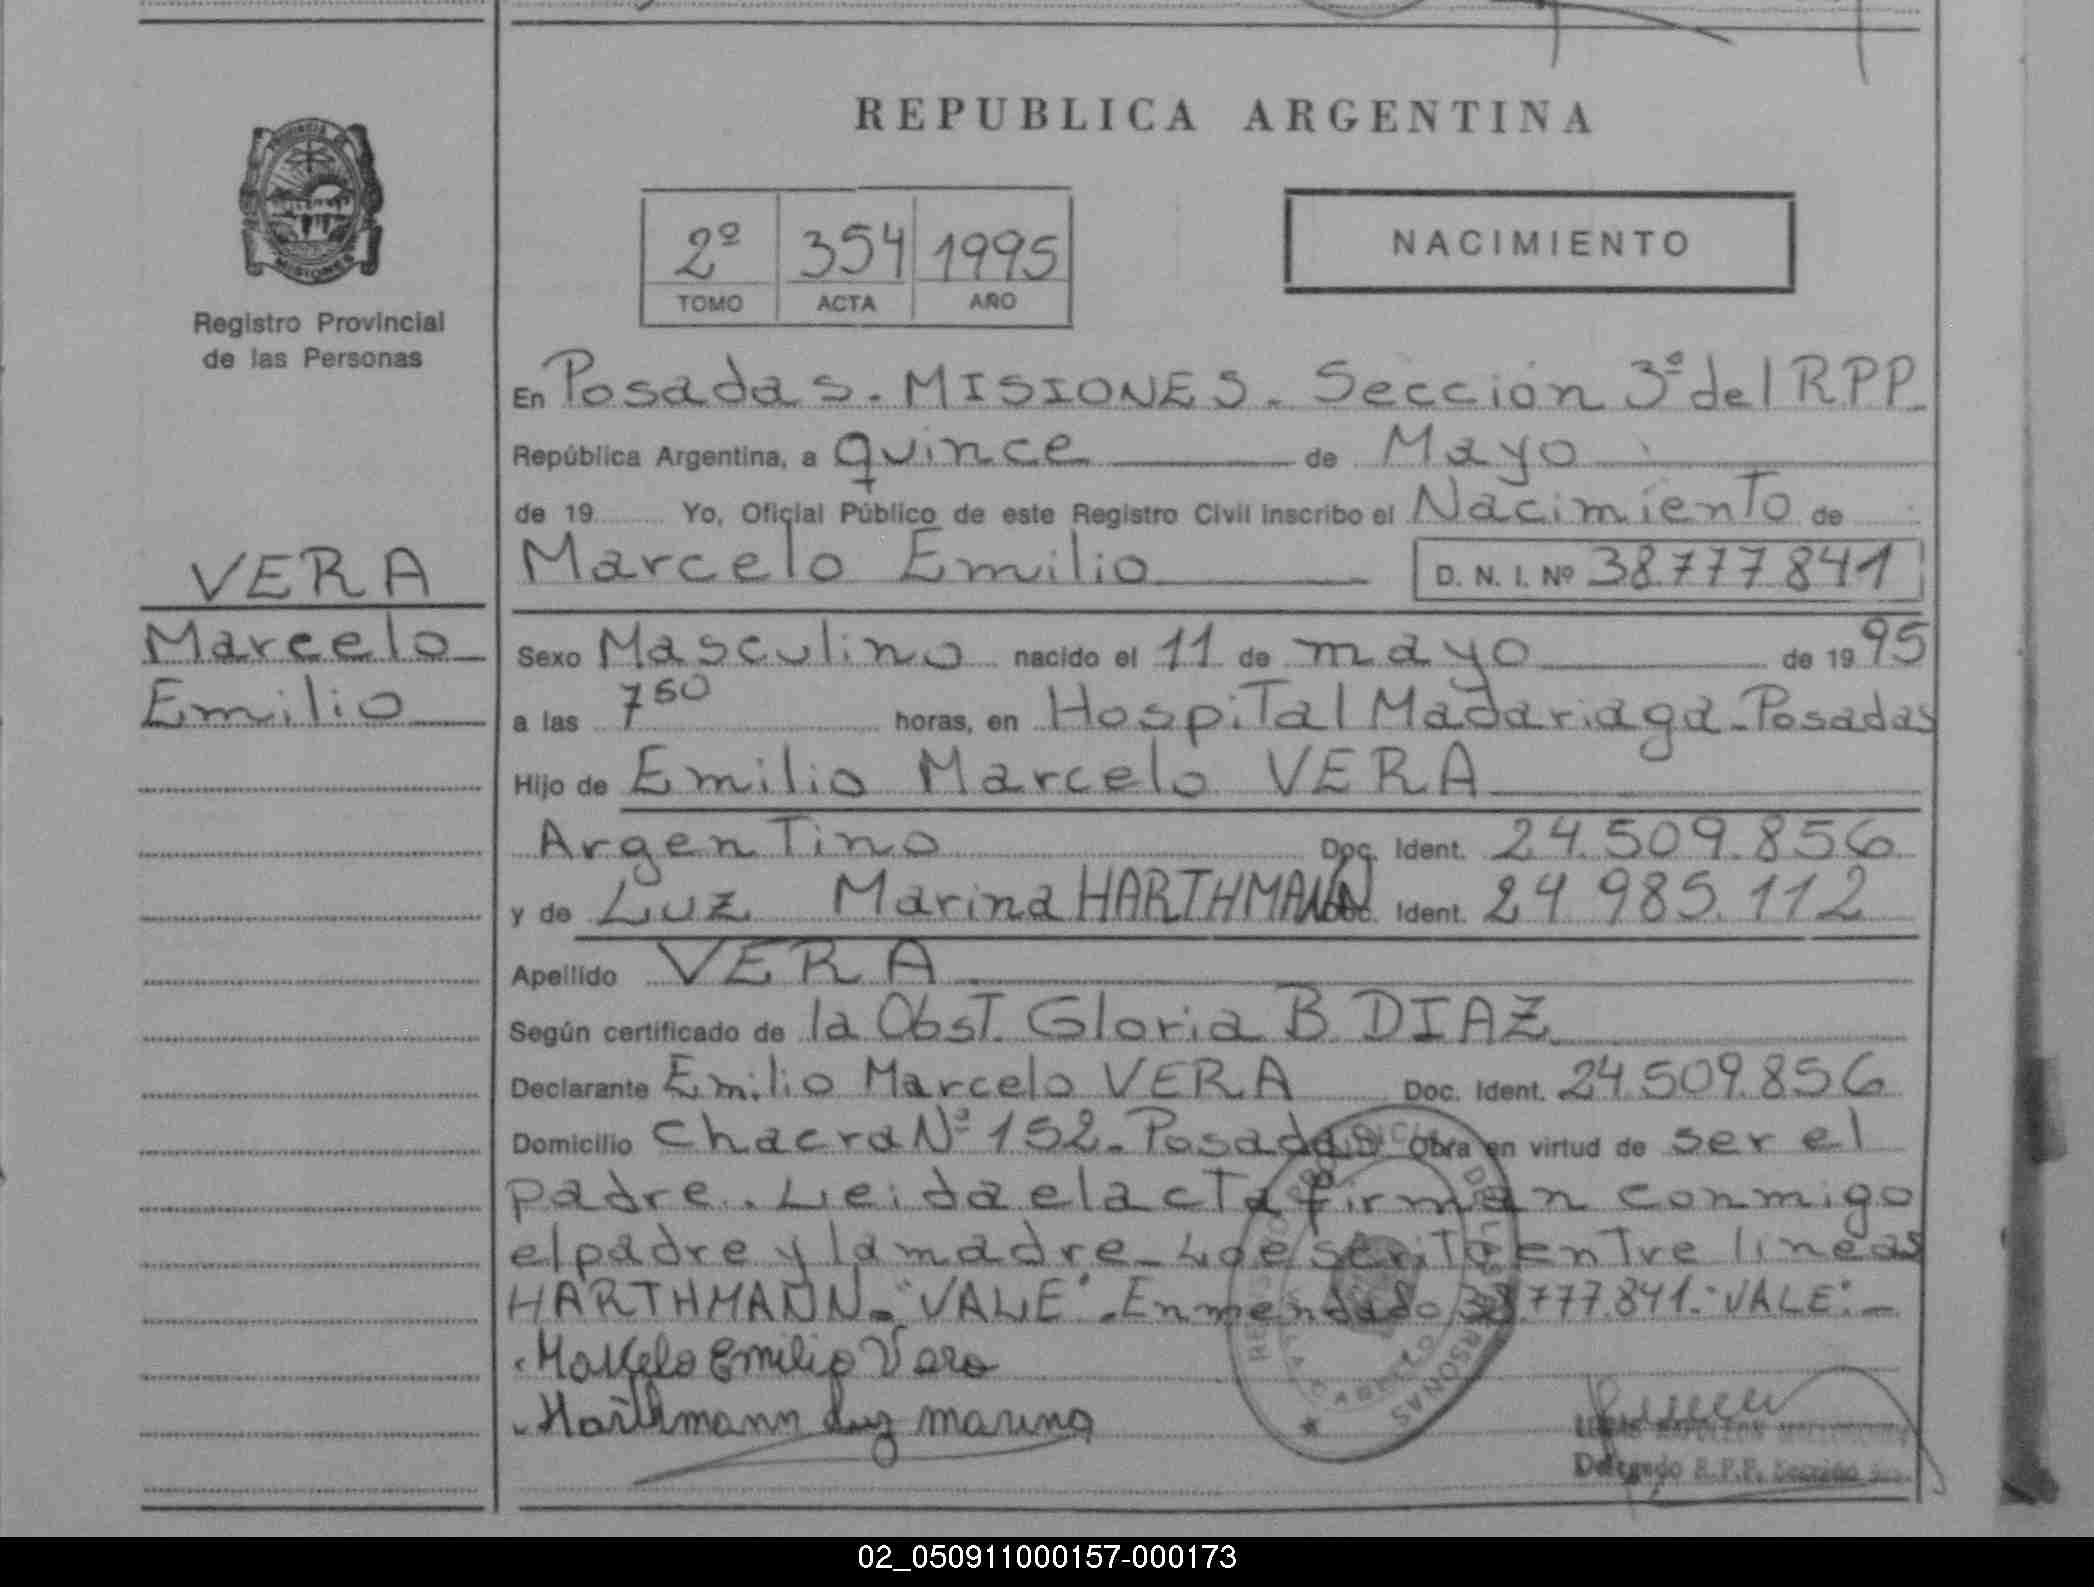 REPUBLICA ARGENTINA
PROVINCIA DE
MISIONES
Registro Provincial
de las Personas
2º 354 1995
TOMO ACTA AÑO
NACIMIENTO
En Posadas. MISIONES. Sección 3ª del RPP.
República Argentina, a quince de Mayo
de 19 Yo, Oficial Público de este Registro Civil inscribo el Nacimiento de
Marcelo Emilio D. N. I. Nº 38.777.841
VERA
Marcelo
Emilio
Sexo Masculino nacido el 11 de mayo de 1995
a las 7 50 horas, en Hospital Madariaga - Posadas
Hijo de Emilio Marcelo VERA
Argentino Doc. Ident. 24.509.856
y de Luz Marina HARTHMANN Doc. Ident. 24 985.112
Apellido VERA
Según certificado de la Obst. Gloria B. DIAZ
Declarante Emilio Marcelo VERA Doc. Ident. 24.509.856
Domicilio Chacra Nº 152 - Posadas Obra en virtud de ser el
padre. Leida el acta firman conmigo
el padre y la madre - Lo escrito entre lineas
HARTHMANN - "VALE" - Enmendado 38.777.841. "VALE". -
Marcelo Emilio Vera
Harthmann Luz marina
Delegado R.P.P. Sección
02_050911000157-000173